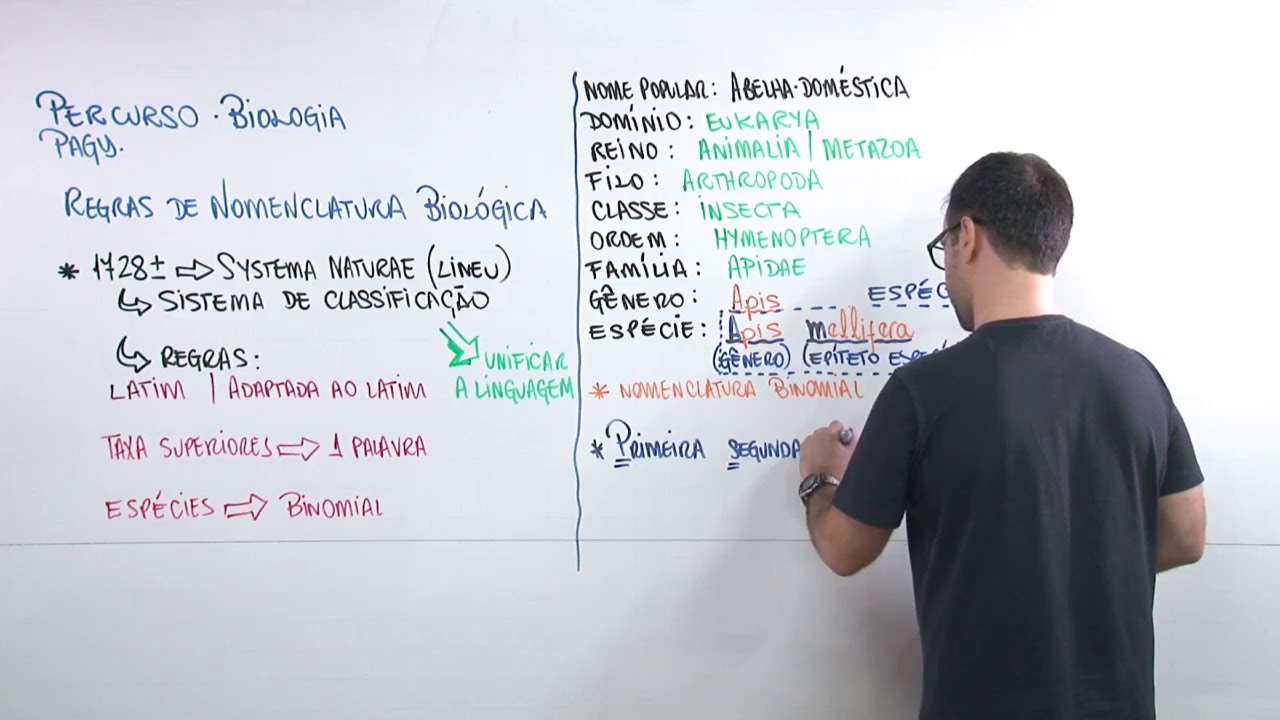 PERCURSO · BIOLOGIA
PAGY.
REGRAS DE NOMENCLATURA BIOLÓGICA
* 1728± ⇨ SYSTEMA NATURAE (LINEU)
↳ SISTEMA DE CLASSIFICAÇÃO
↳ REGRAS:
UNIFICAR
A LINGUAGEM
LATIM | ADAPTADA AO LATIM
TAXA SUPERIORES ⇨ 1 PALAVRA
ESPÉCIES ⇨ BINOMIAL
NOME POPULAR: ABELHA-DOMÉSTICA
DOMÍNIO: EUKARYA
REINO: ANIMALIA | METAZOA
FILO: ARTHROPODA
CLASSE: INSECTA
ORDEM: HYMENOPTERA
FAMÍLIA: APIDAE
GÊNERO: Apis
ESPÉCIE: Apis mellifera
(GÊNERO) (EPÍTETO
* NOMENCLATURA BINOMIAL
* PRIMEIRA SEGUNDA